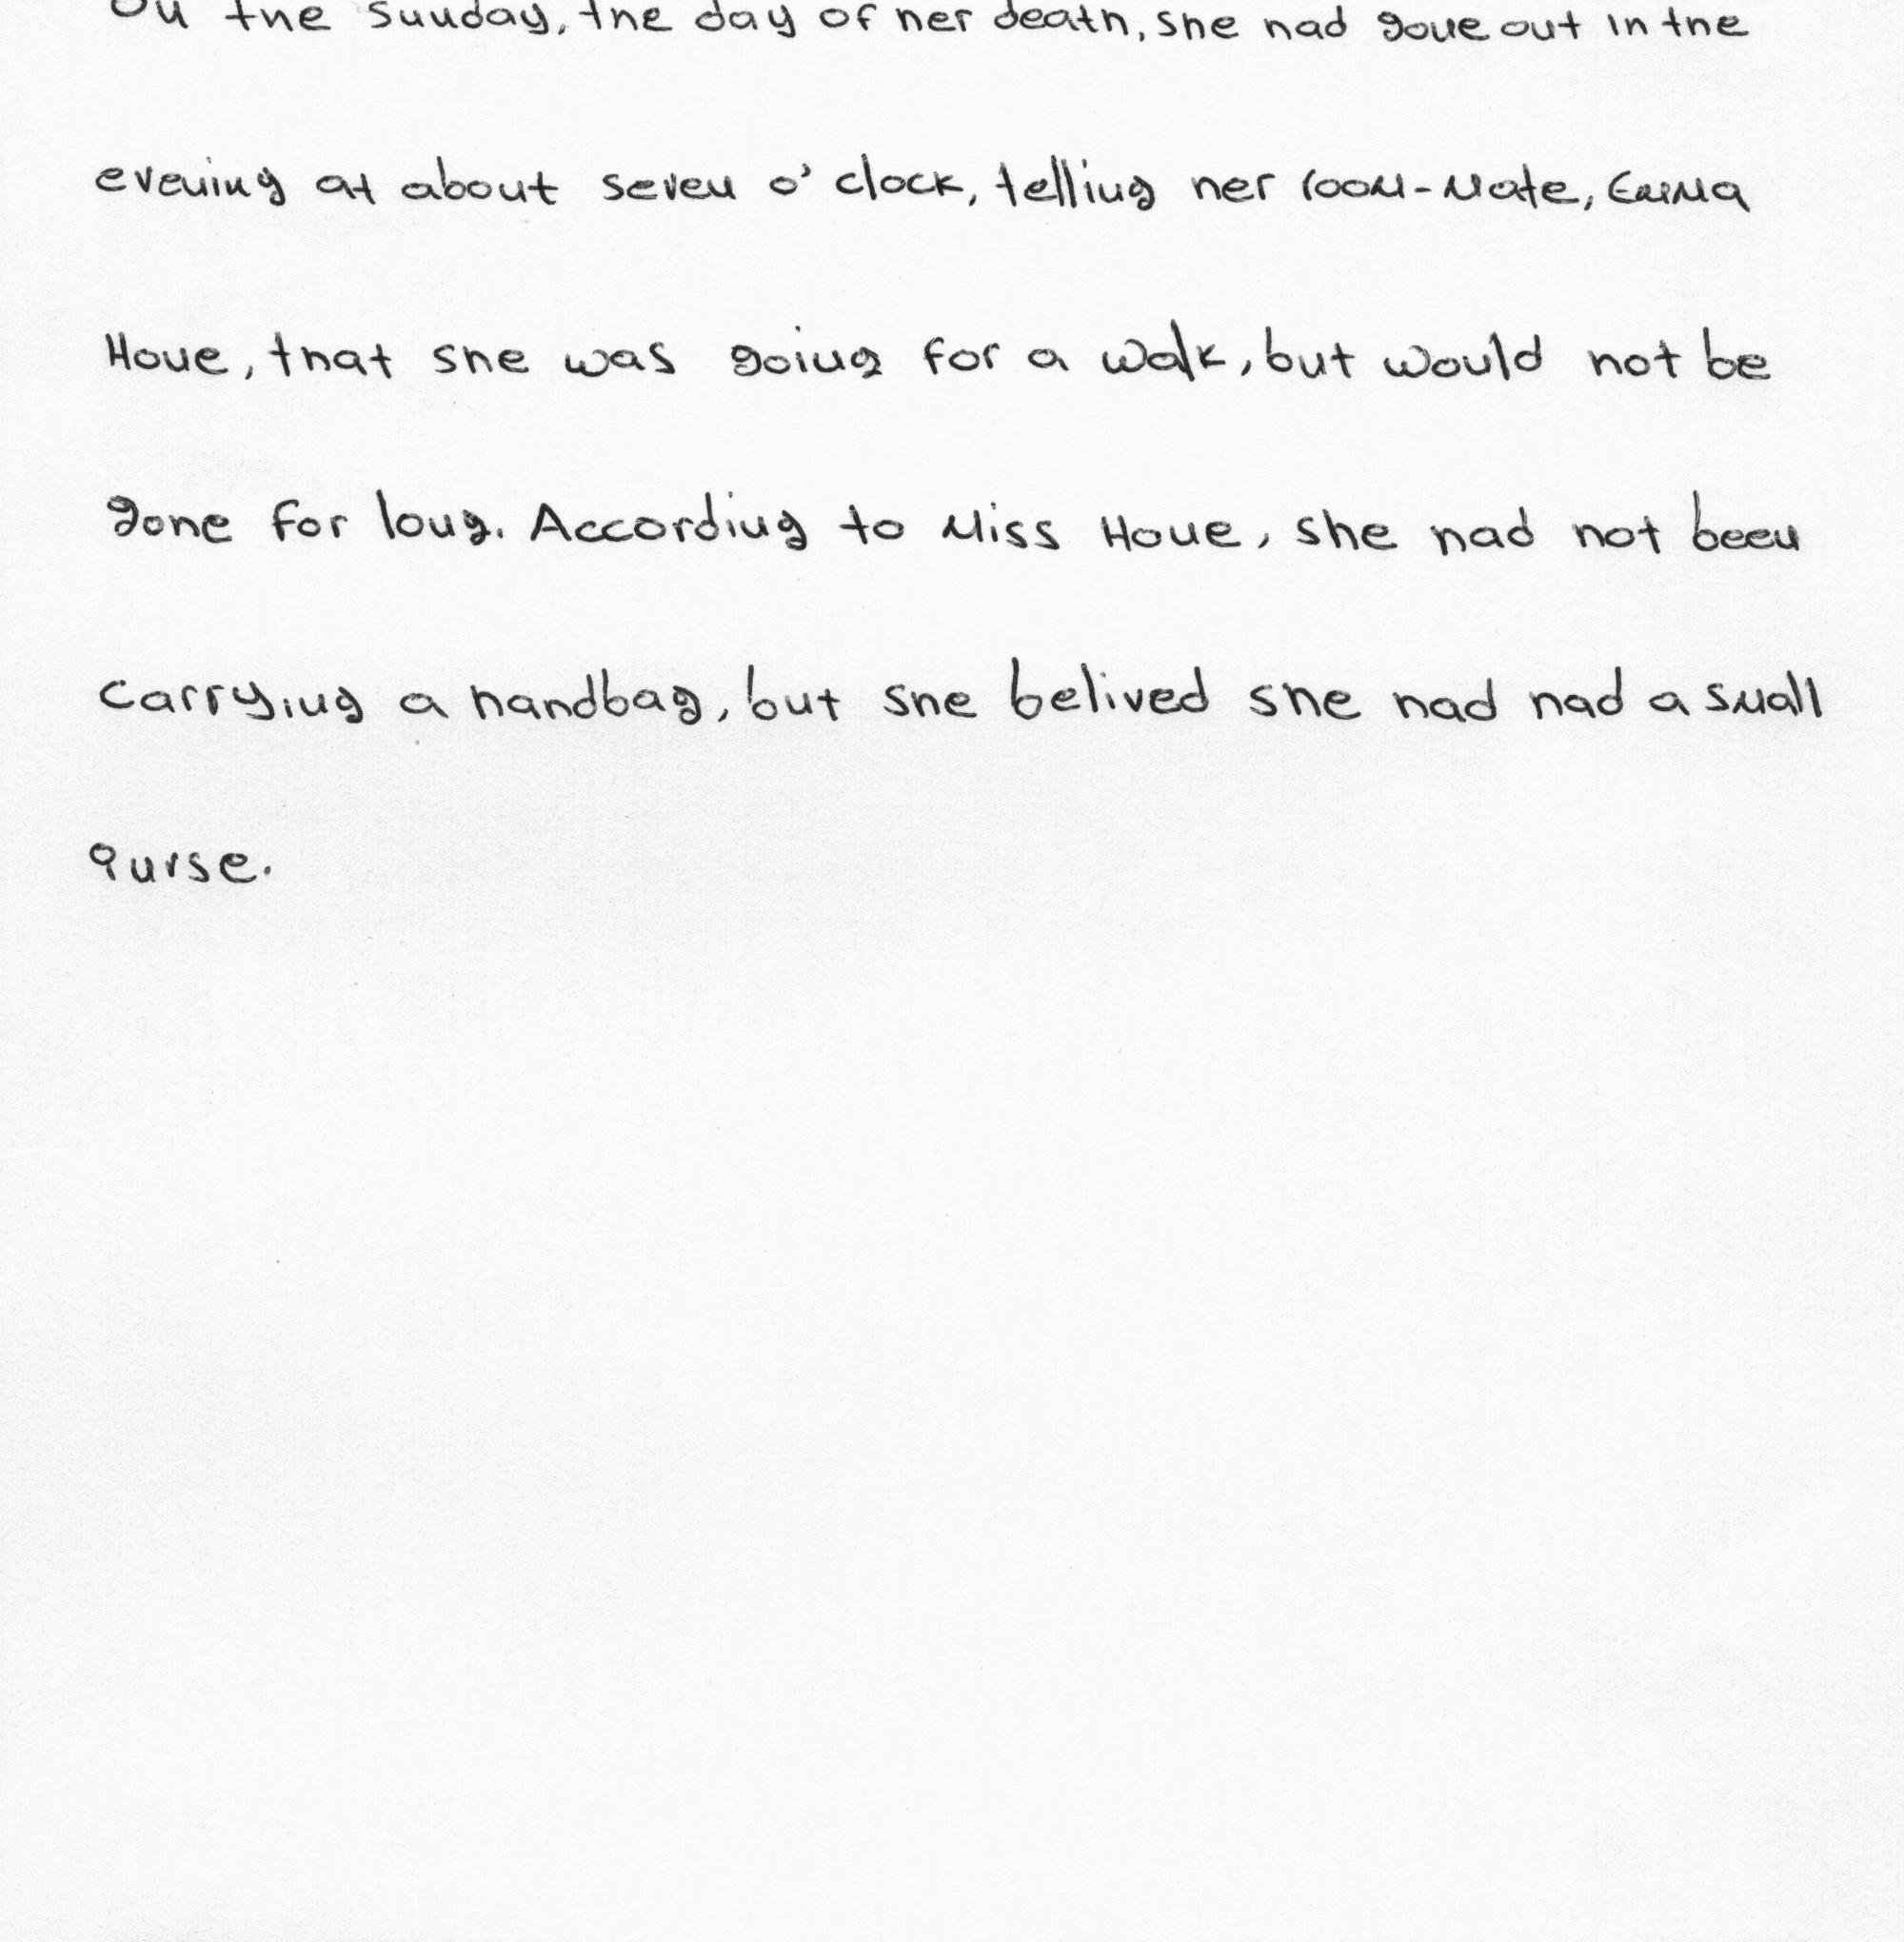 On the Sunday, the day of her death, she had gone out in the
evening at about seven o' clock, telling her room-mate, Emma
Hone, that she was going for a walk, but would not be
gone for long. According to Miss Hone, she had not been
carrying a handbag, but she belived she had had a small
purse.